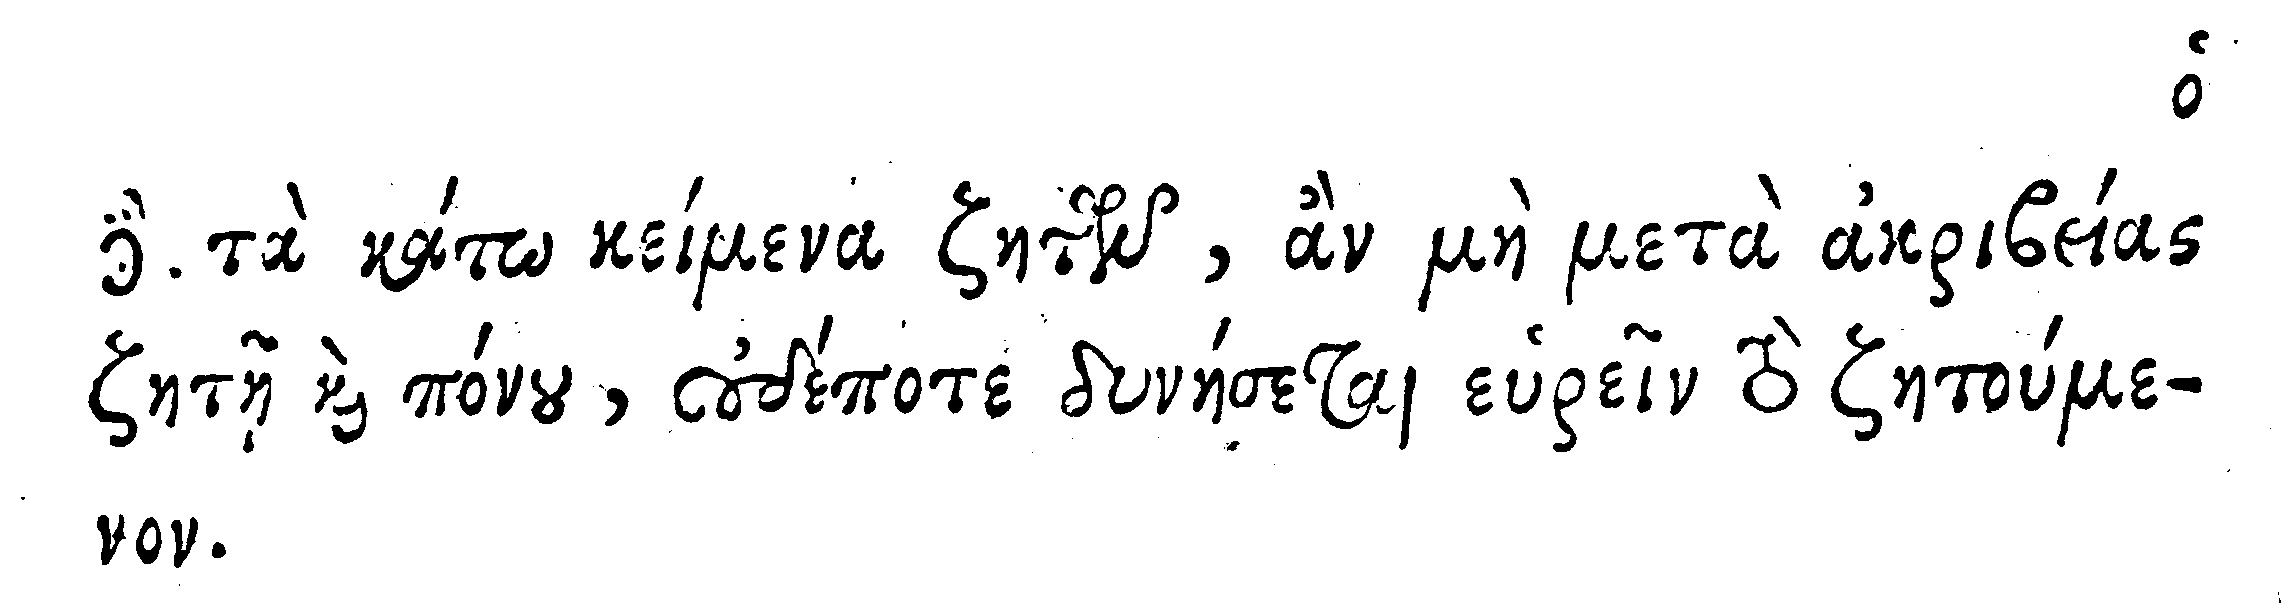 ὁ
τὰ κάτω κείμενα ζητῶν, ἂν μὴ μετὰ ἀκριβείας
ζητῇ καὶ πόνου, οὐδέποτε δυνήσεται εὑρεῖν τὸ ζητούμε-
νον.